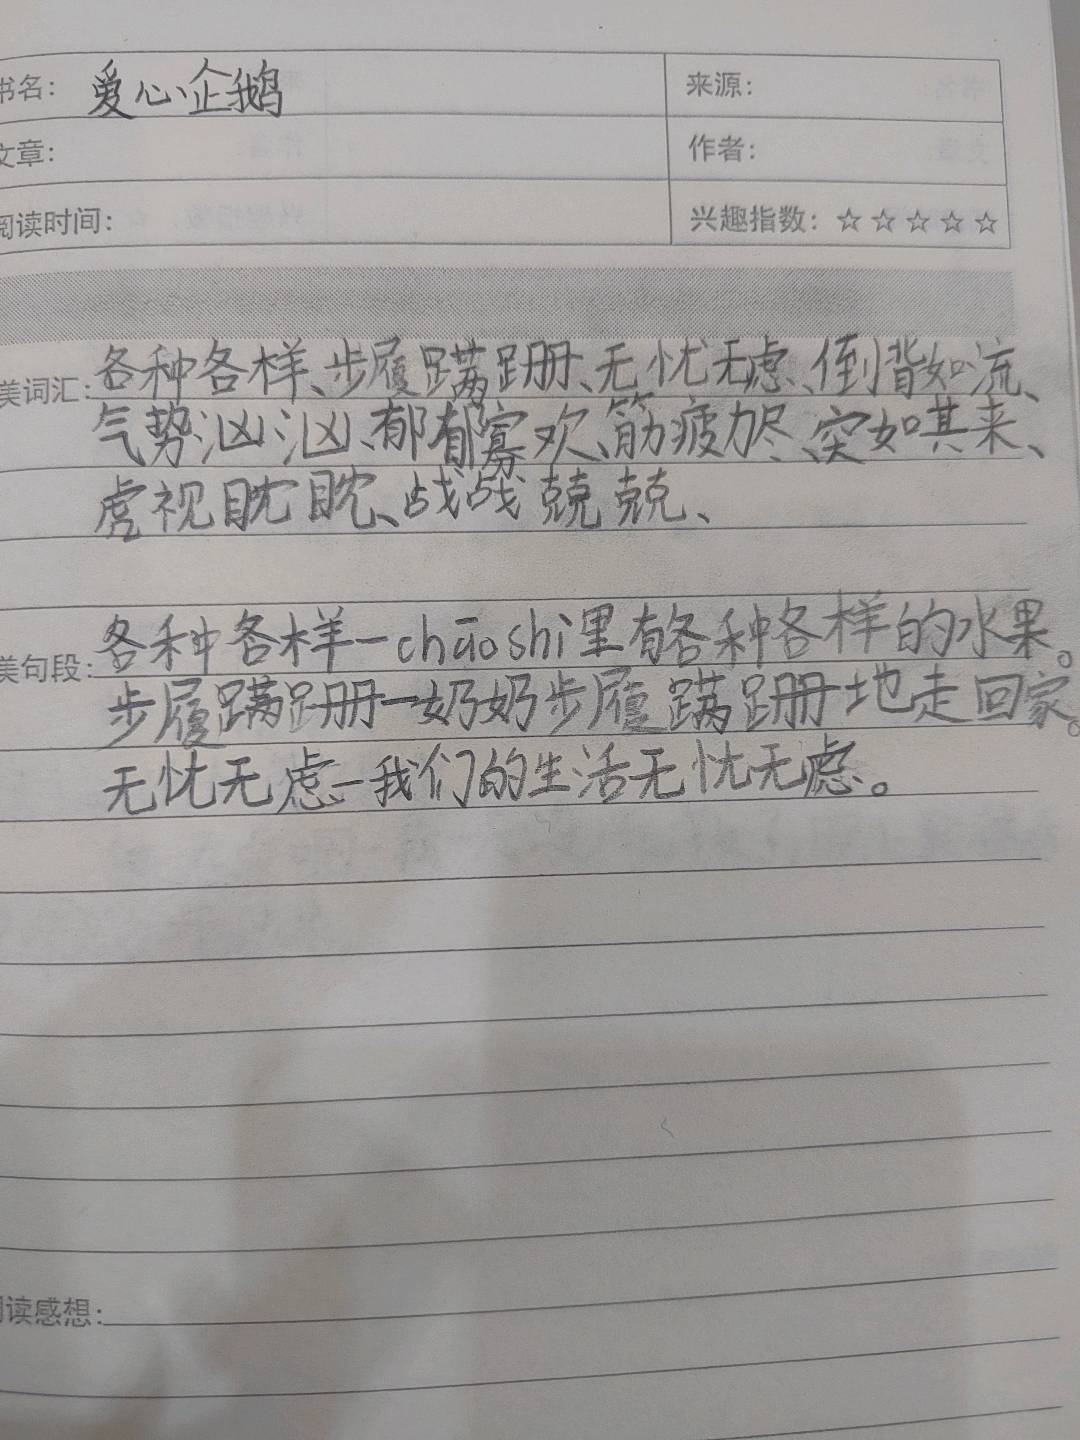 书名：爱心企鹅 来源：
文章： 作者：
阅读时间： 兴趣指数：☆☆☆☆☆
美词汇：各种各样、步履蹒跚、无忧无虑、倒背如流、
气势汹汹、郁郁寡欢、筋疲力尽、突如其来、
虎视眈眈、战战兢兢、
美句段：各种各样—chāoshì里有各种各样的水果。
步履蹒跚—奶奶步履蹒跚地走回家。
无忧无虑—我们的生活无忧无虑。
阅读感想：